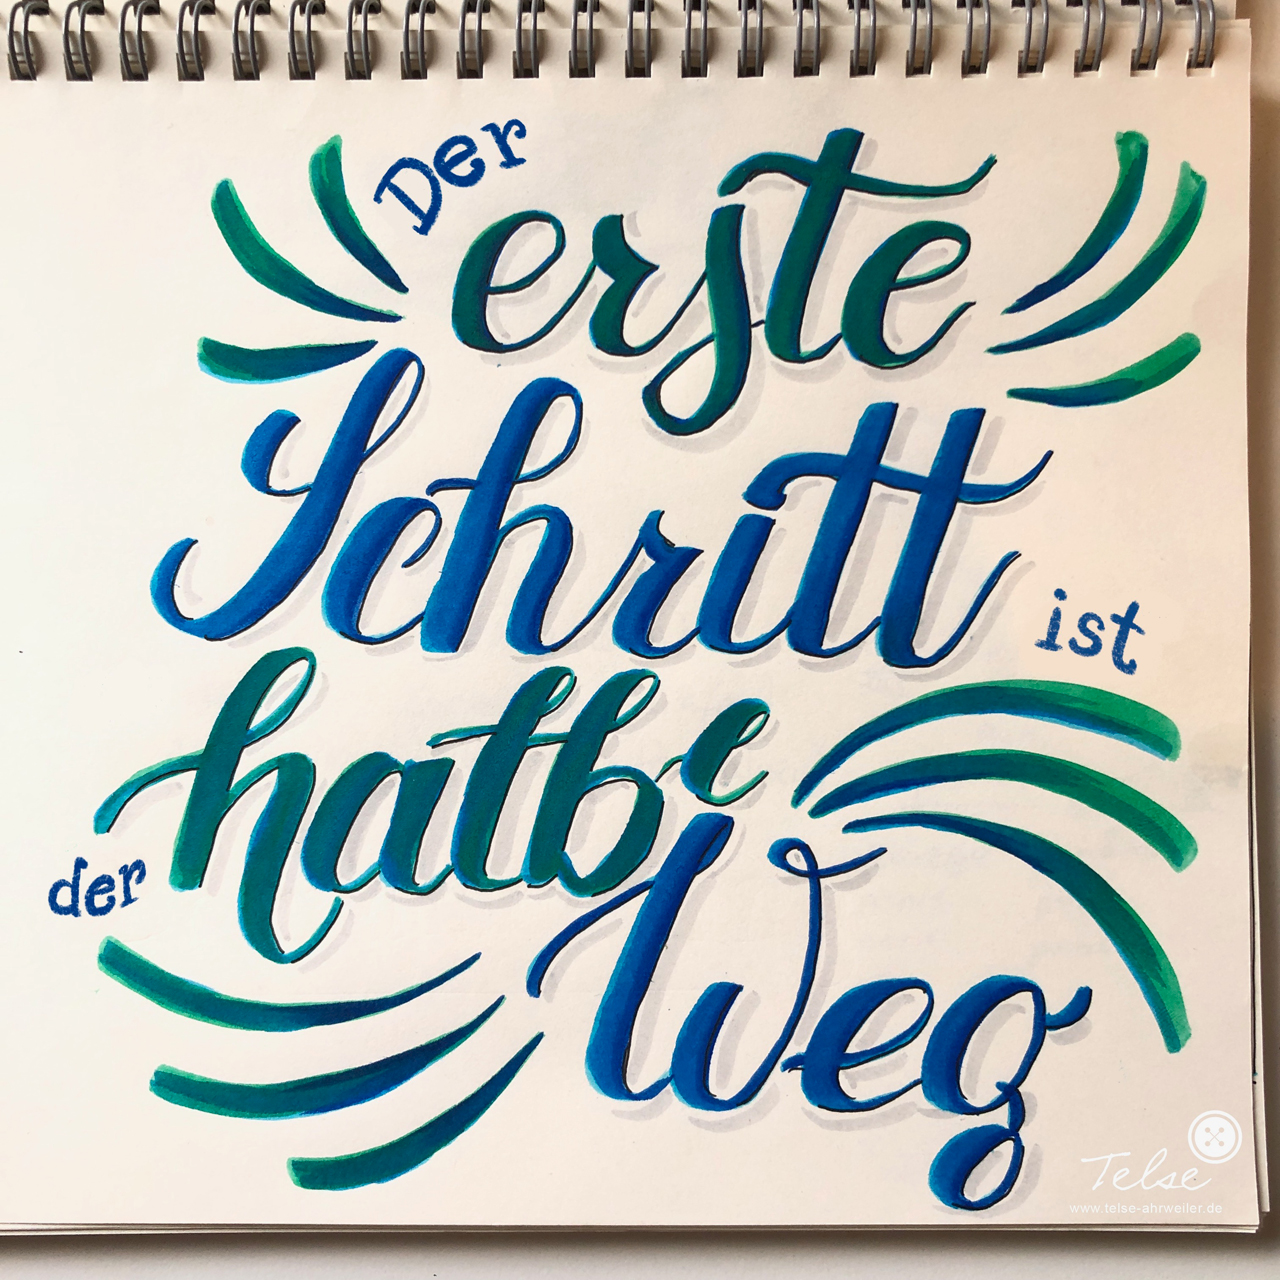 Der
erste
Schritt
ist
der
halbe
Weg
Telse
www.telse-ahrweiler.de